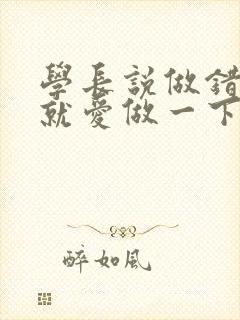 學長説做錯
就愛做一下
醉如風